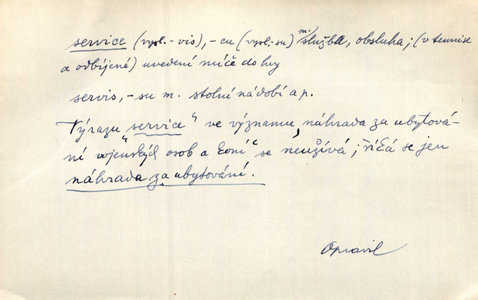 service (vysl. -vis), -cu (vysl. -su) m. služba, obsluha; (v tennise
a odbíjené) uvedení míče do hry
servis, -su m. stolní nádobí a p.
Výrazu „service“ ve významu „náhrada za ubytová-
ní vojenských osob a koní“ se neužívá; říká se jen
náhrada za ubytování.
Opravil